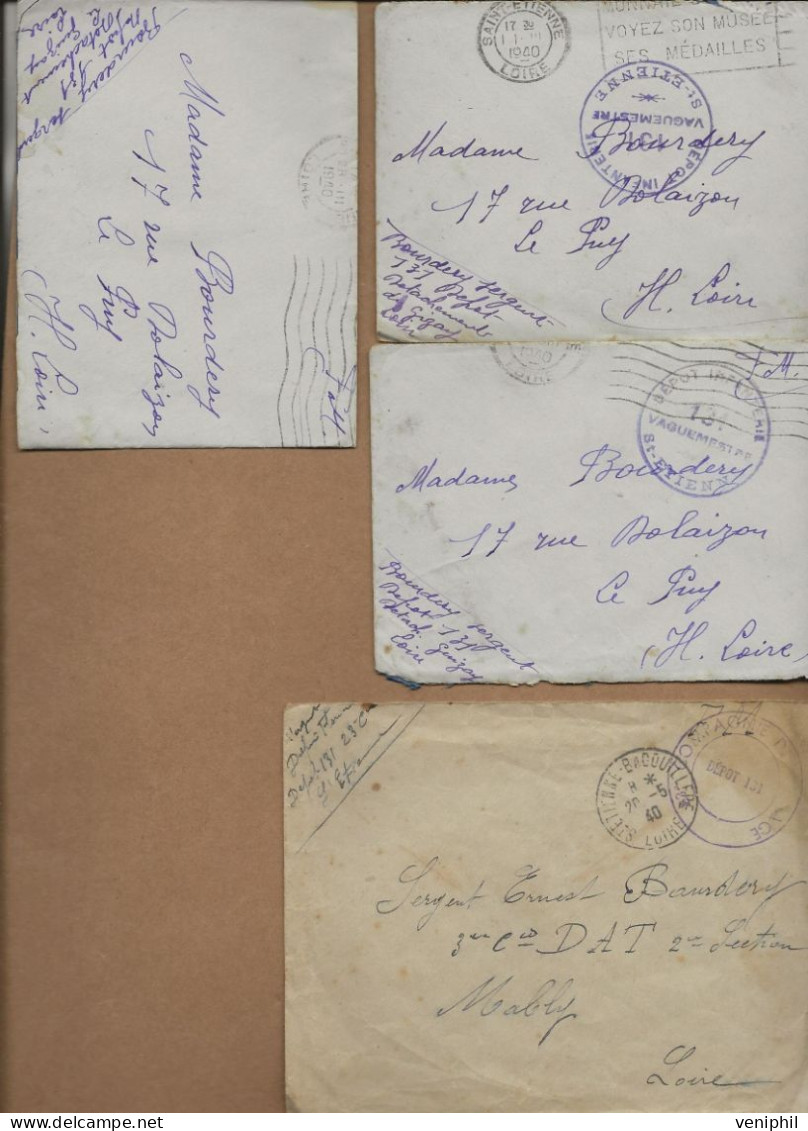 Bourdery sergent
Dépôt 131
Détachement
de Guizay
Loire
Madame Bourdery
17 rue Bolaizon
Le Puy
H. Loire
1940
F.M.
SAINT-ETIENNE
17
1940
LOIRE
VOYEZ SON MUSÉE
SES MÉDAILLES
DÉPÔT INFANTERIE
131
VAGUEMESTRE
St-ETIENNE
Madame Bourdery
17 rue Bolaizon
Le Puy
H. Loire
Bourdery sergent
131 Dépôt
Détachement
de Guizay
Loire
1940
F.M.
DÉPÔT INFANTERIE
131
VAGUEMESTRE
St-ETIENNE
Madame Bourdery
17 rue Bolaizon
Le Puy
H. Loire
Bourdery sergent
Dépôt 131
Détach. Guizay
Loire
Dépôt 131 23e Cie
St Etienne
F.M.
ST ETIENNE-BADOUILLERE
8 * 5
20 - 1
40
LOIRE
COMPAGNIE
DÉPÔT 131
Sergent Ernest Bourdery
3me Cie D A T 2me Section
Mably
Loire
veniphil